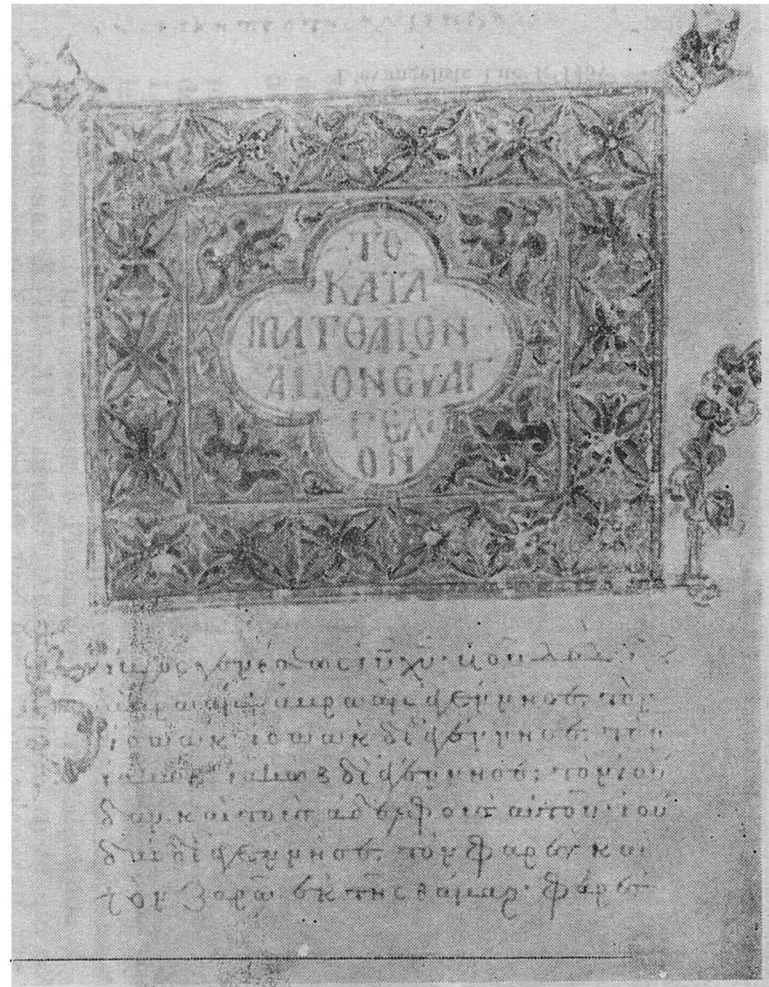 ΤΟ
ΚΑΤΑ
ΜΑΤΘΑΙΟΝ
ΑΓΙΟΝ ΕΥΑΓ
ΓΕΛΙ
ΟΝ
γενέσεως ιῦ χῦ
ἀβραὰμ ἐγέννησε τὸν
ἰσαάκ· ἰσαὰκ δὲ ἐγέννησε τὸν
ἰακώβ· ἰακὼβ δὲ ἐγέννησε τὸν ἰού
δαν καὶ τοὺς ἀδελφοὺς αὐτοῦ· ἰού
δας δὲ ἐγέννησε τὸν φαρὲς καὶ
τὸν ζαρὰ ἐκ τῆς θάμαρ· φαρὲς